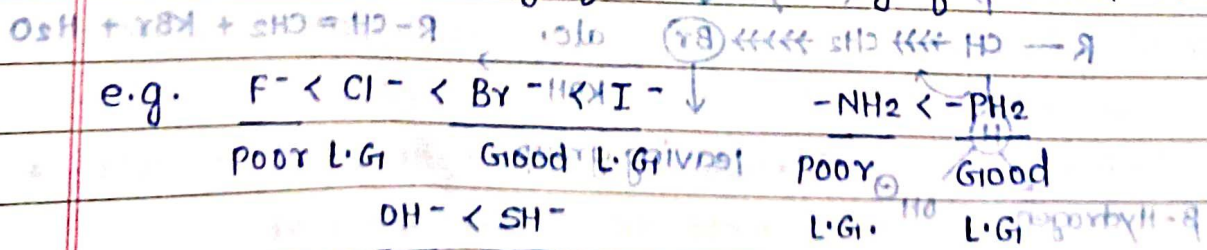 e.g. F⁻ < Cl⁻ < Br⁻ < I⁻ -NH2 < -PH2
Poor L.G Good L.G Poor Good
OH⁻ < SH⁻ L.G. L.G